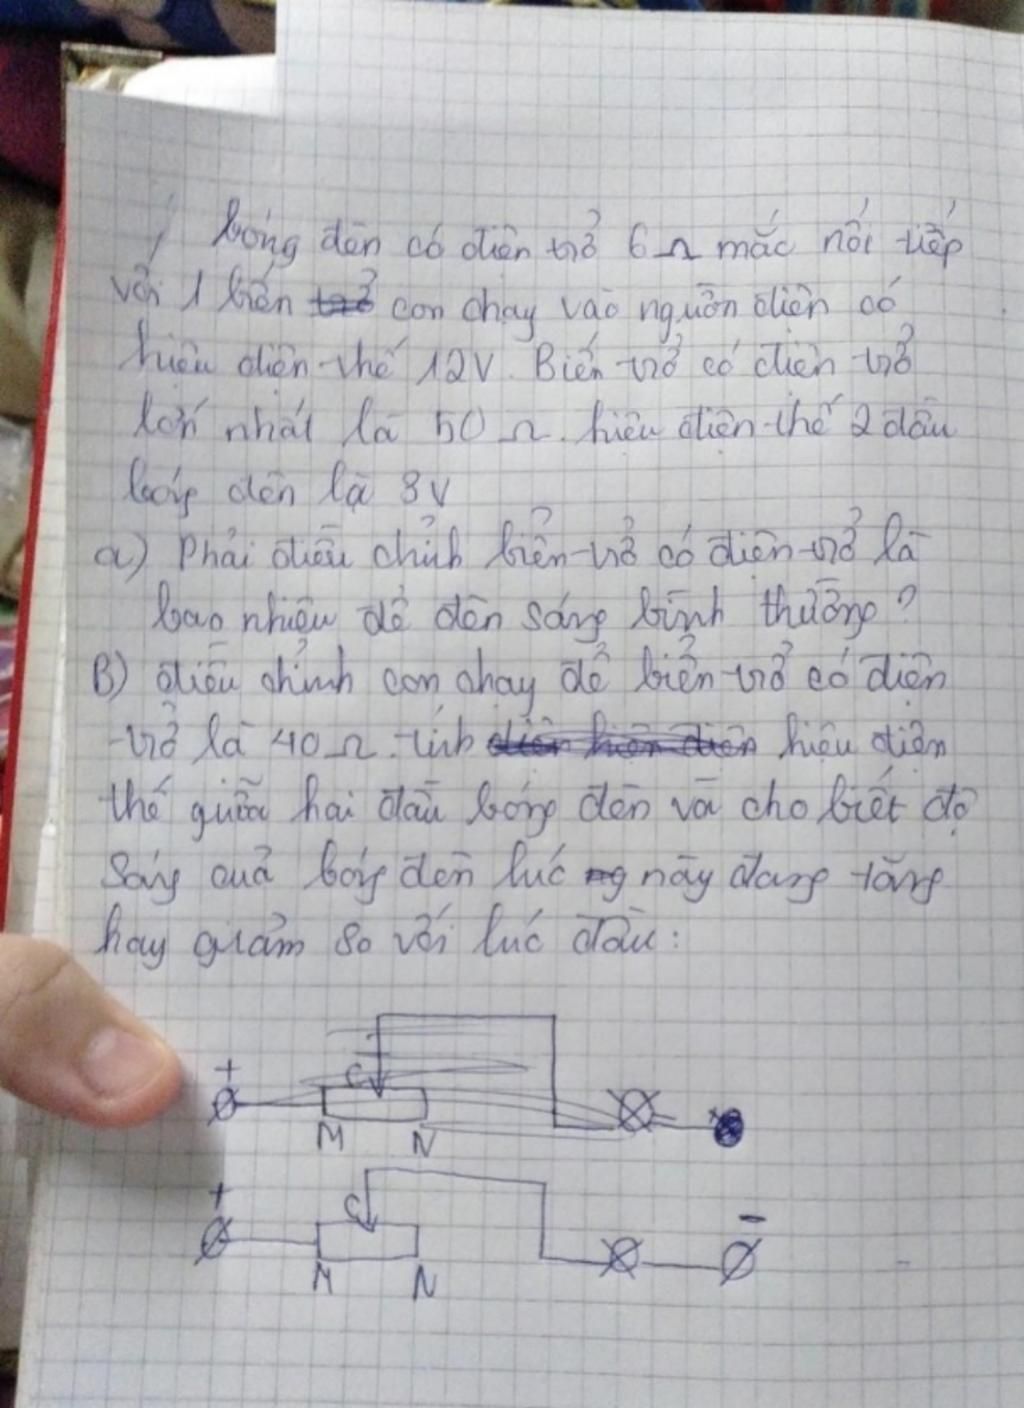 1 bóng đèn có điện trở 6Ω mắc nối tiếp
với 1 biến trở con chạy vào nguồn điện có
hiệu điện thế 12V. Biến trở có điện trở
lớn nhất là 50Ω. hiệu điện thế 2 đầu
bóng đèn là 3V
a) Phải điều chỉnh biển trở có điện trở là
bao nhiêu để đèn sáng bình thường?
B) điều chỉnh con chạy để biển trở có điện
trở là 40Ω. tính hiệu điện
thế giữa hai đầu bóng đèn và cho biết độ
sáng quả bóng đèn lúc này đang tăng
hay giảm so với lúc đầu:
+ C
M N
+ C -
M N